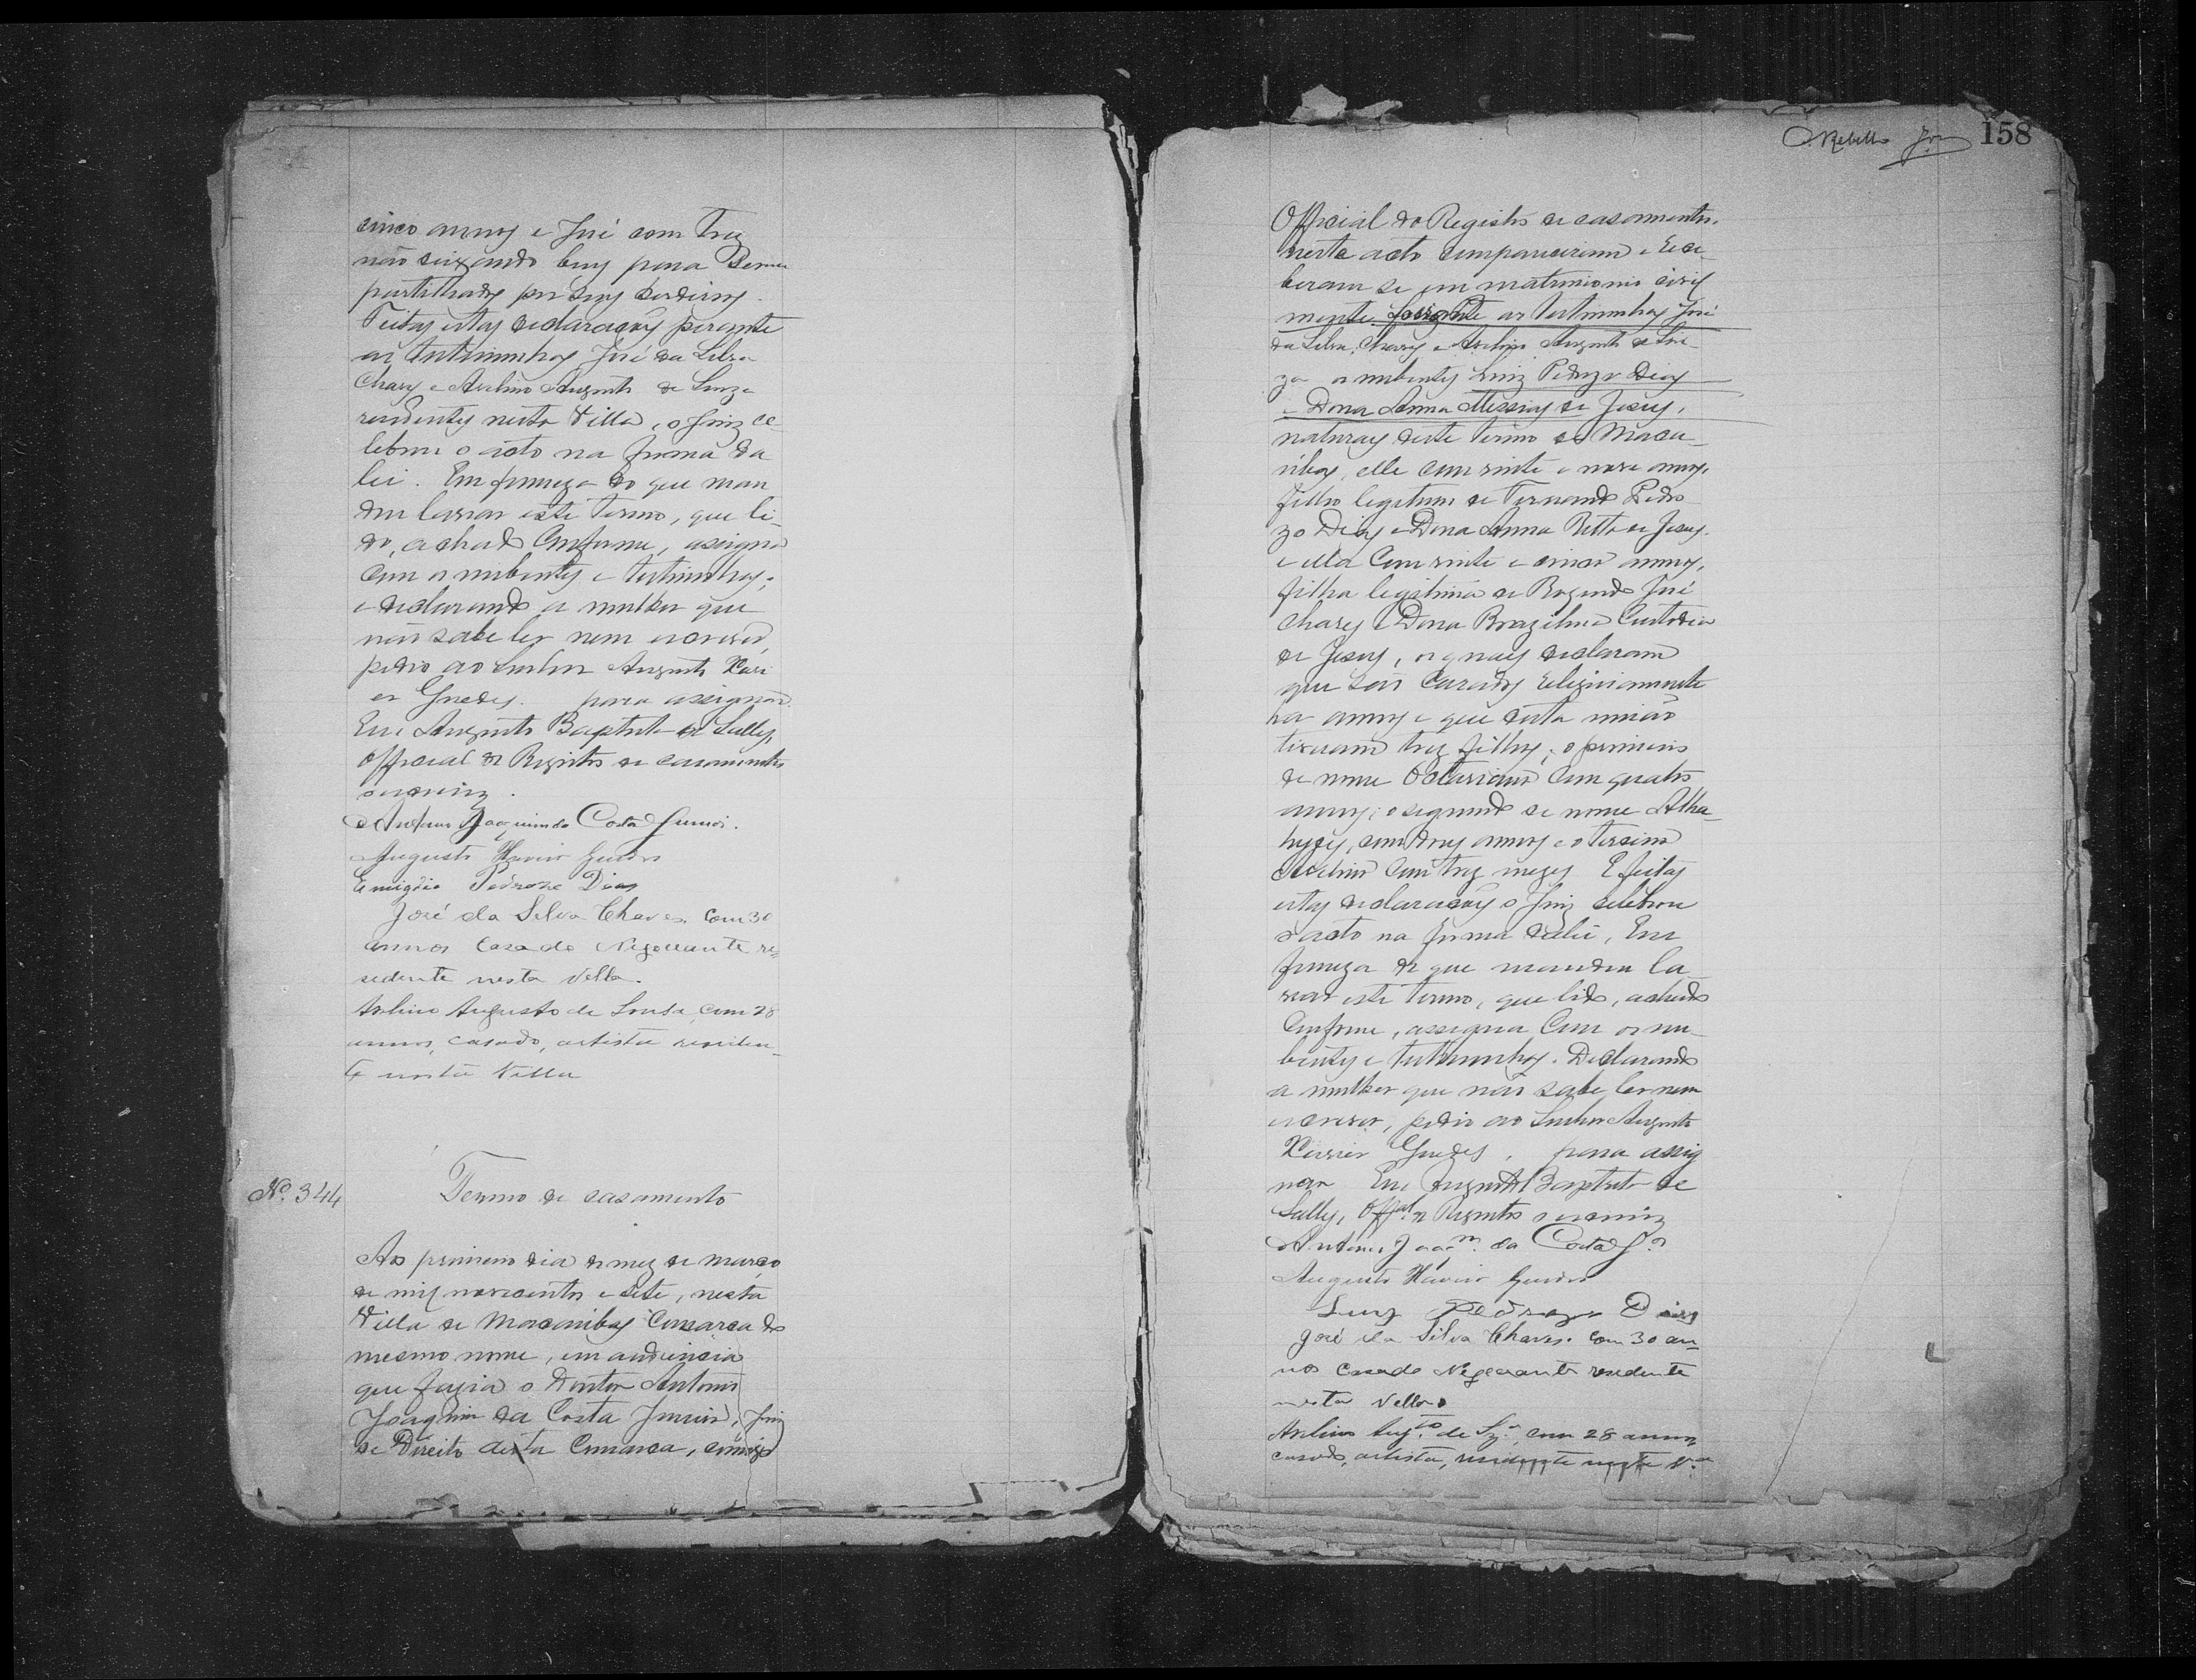 cinco annos e José com trez
não deixando bens para serem
partilhados por seus herdeiros.
Feitas estas declarações perante
as testimunhas José da Silva
Chaves e Avelino Augusto de Souza
residentes nesta Villa, o Juiz ce-
lebrou o acto na forma da
lei. Em firmeza do que man
dou lavrar este termo, que li-
do, achado conforme, assigna
com os nubentes e testimunhas;
e declarando a mulher que
não sabe ler nem escrever,
pedio ao Senhor Augusto Xavi
er Guedes. para assignar.
Eu Augusto Baptista de Sully,
Official do Registro de casamentos
escreviz.
Antonio Joaquim da Costa Junior.
Augusto Xavier Guedes
Emigdio Pedroso Dias
José da Silva Chaves com 30
annos Casado Negociante re-
sidente nesta Villa.
Avelino Augusto de Sousa, com 28
annos, casado, artista residen-
te nesta Villa
Nº 344
Termo de casamento
Ao primeiro dia do mez de março
de mil novecentos e sete, nesta
Villa de Macaúbas Comarca do
mesmo nome, em audiencia
que fazia o Doutor Antonio
Joaquim da Costa Junior, Juiz
de Direito desta Comarca, comigo
Rebello Jor 158
Official do Registro de casamentos.
neste acto compareceram e rece-
beram se em matrimonio civil
mente perante as testimunhas José
da Silva Chaves e Avelino Augusto de Sou-
za os nubentes Luiz Pedrozo Dias
e Dona Anna Messias de Jesus,
naturaes deste termo de Macau-
ubas, elle com vinte e nove annos,
filho legitimo de Fernando Pedro-
zo Dias e Dona Anna Ritta de Jesus.
e ella com vinte e cinco annos,
filha legitima de Rozendo José
Chaves e Dona Brazilina Custodia
de Jesus, os quaes declaram
que são Casados religiosamente
ha annos e que desta união
tiveram trez filhos; o primeiro
de nome Octaviano com quatro
annos; o segundo de nome Atha-
hydes, com dous annos e o terceiro
Avelino com trez mezes E feitas
estas declarações o Juiz celebrou
o acto na forma da lei, Em
firmeza do que mandou la-
vrar este termo, que lido, achado
conforme, assigna com os nu-
bentes e testimunhas. Declarando
a mulher que não sabe ler nem
escrever, pedio ao Senhor Augusto
Xavier Guedes, para assig
nar Eu Augusto Baptista de
Sully, Offal do Registro o escreviz
Antonio Joaqm. da Costa Jor
Augusto Xavier Guedes
Luiz Pedrozo Dias
José da Silva Chaves. com 30 an-
nos Casado Negociante residente
nesta Villa.
Avelino Augto. de Sza. com 28 annos
casado, artista, residente nesta Va.